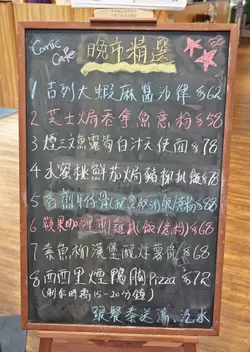 Comic Cafe
晚市精選
1 吉列大蝦麻醬沙律 $62
2 芝士焗吞拿魚意粉 $58
3 煙三文魚露荀白汁天使面 $78
4 水蜜桃鮮茄焗豬扒飯 $78
5 香煎牛仔 飯 $68
6 蘋果咖喱 雞 (飯/粉) $68
7 素魚柳漢堡配炸薯 $68
8 西西里煙鴨胸 Pizza $72
(制作時需 15-20分鐘)
跟餐奉送湯、汽水